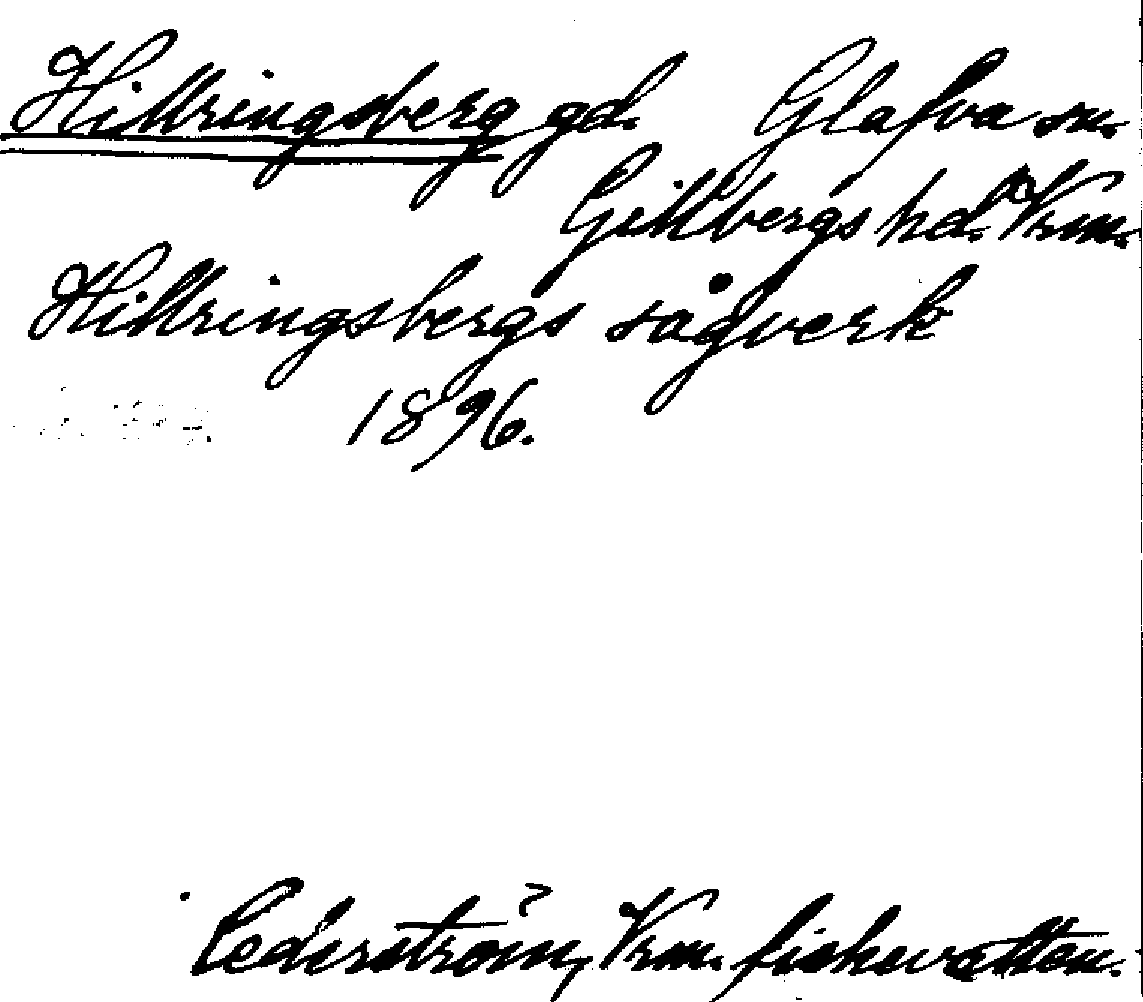 Hillringsberg gd. Glafva sn.
Gillbergs hd. Vrm.
Hillringsbergs sågverk
1896.
Cederström, Vrm. fiskevatten.